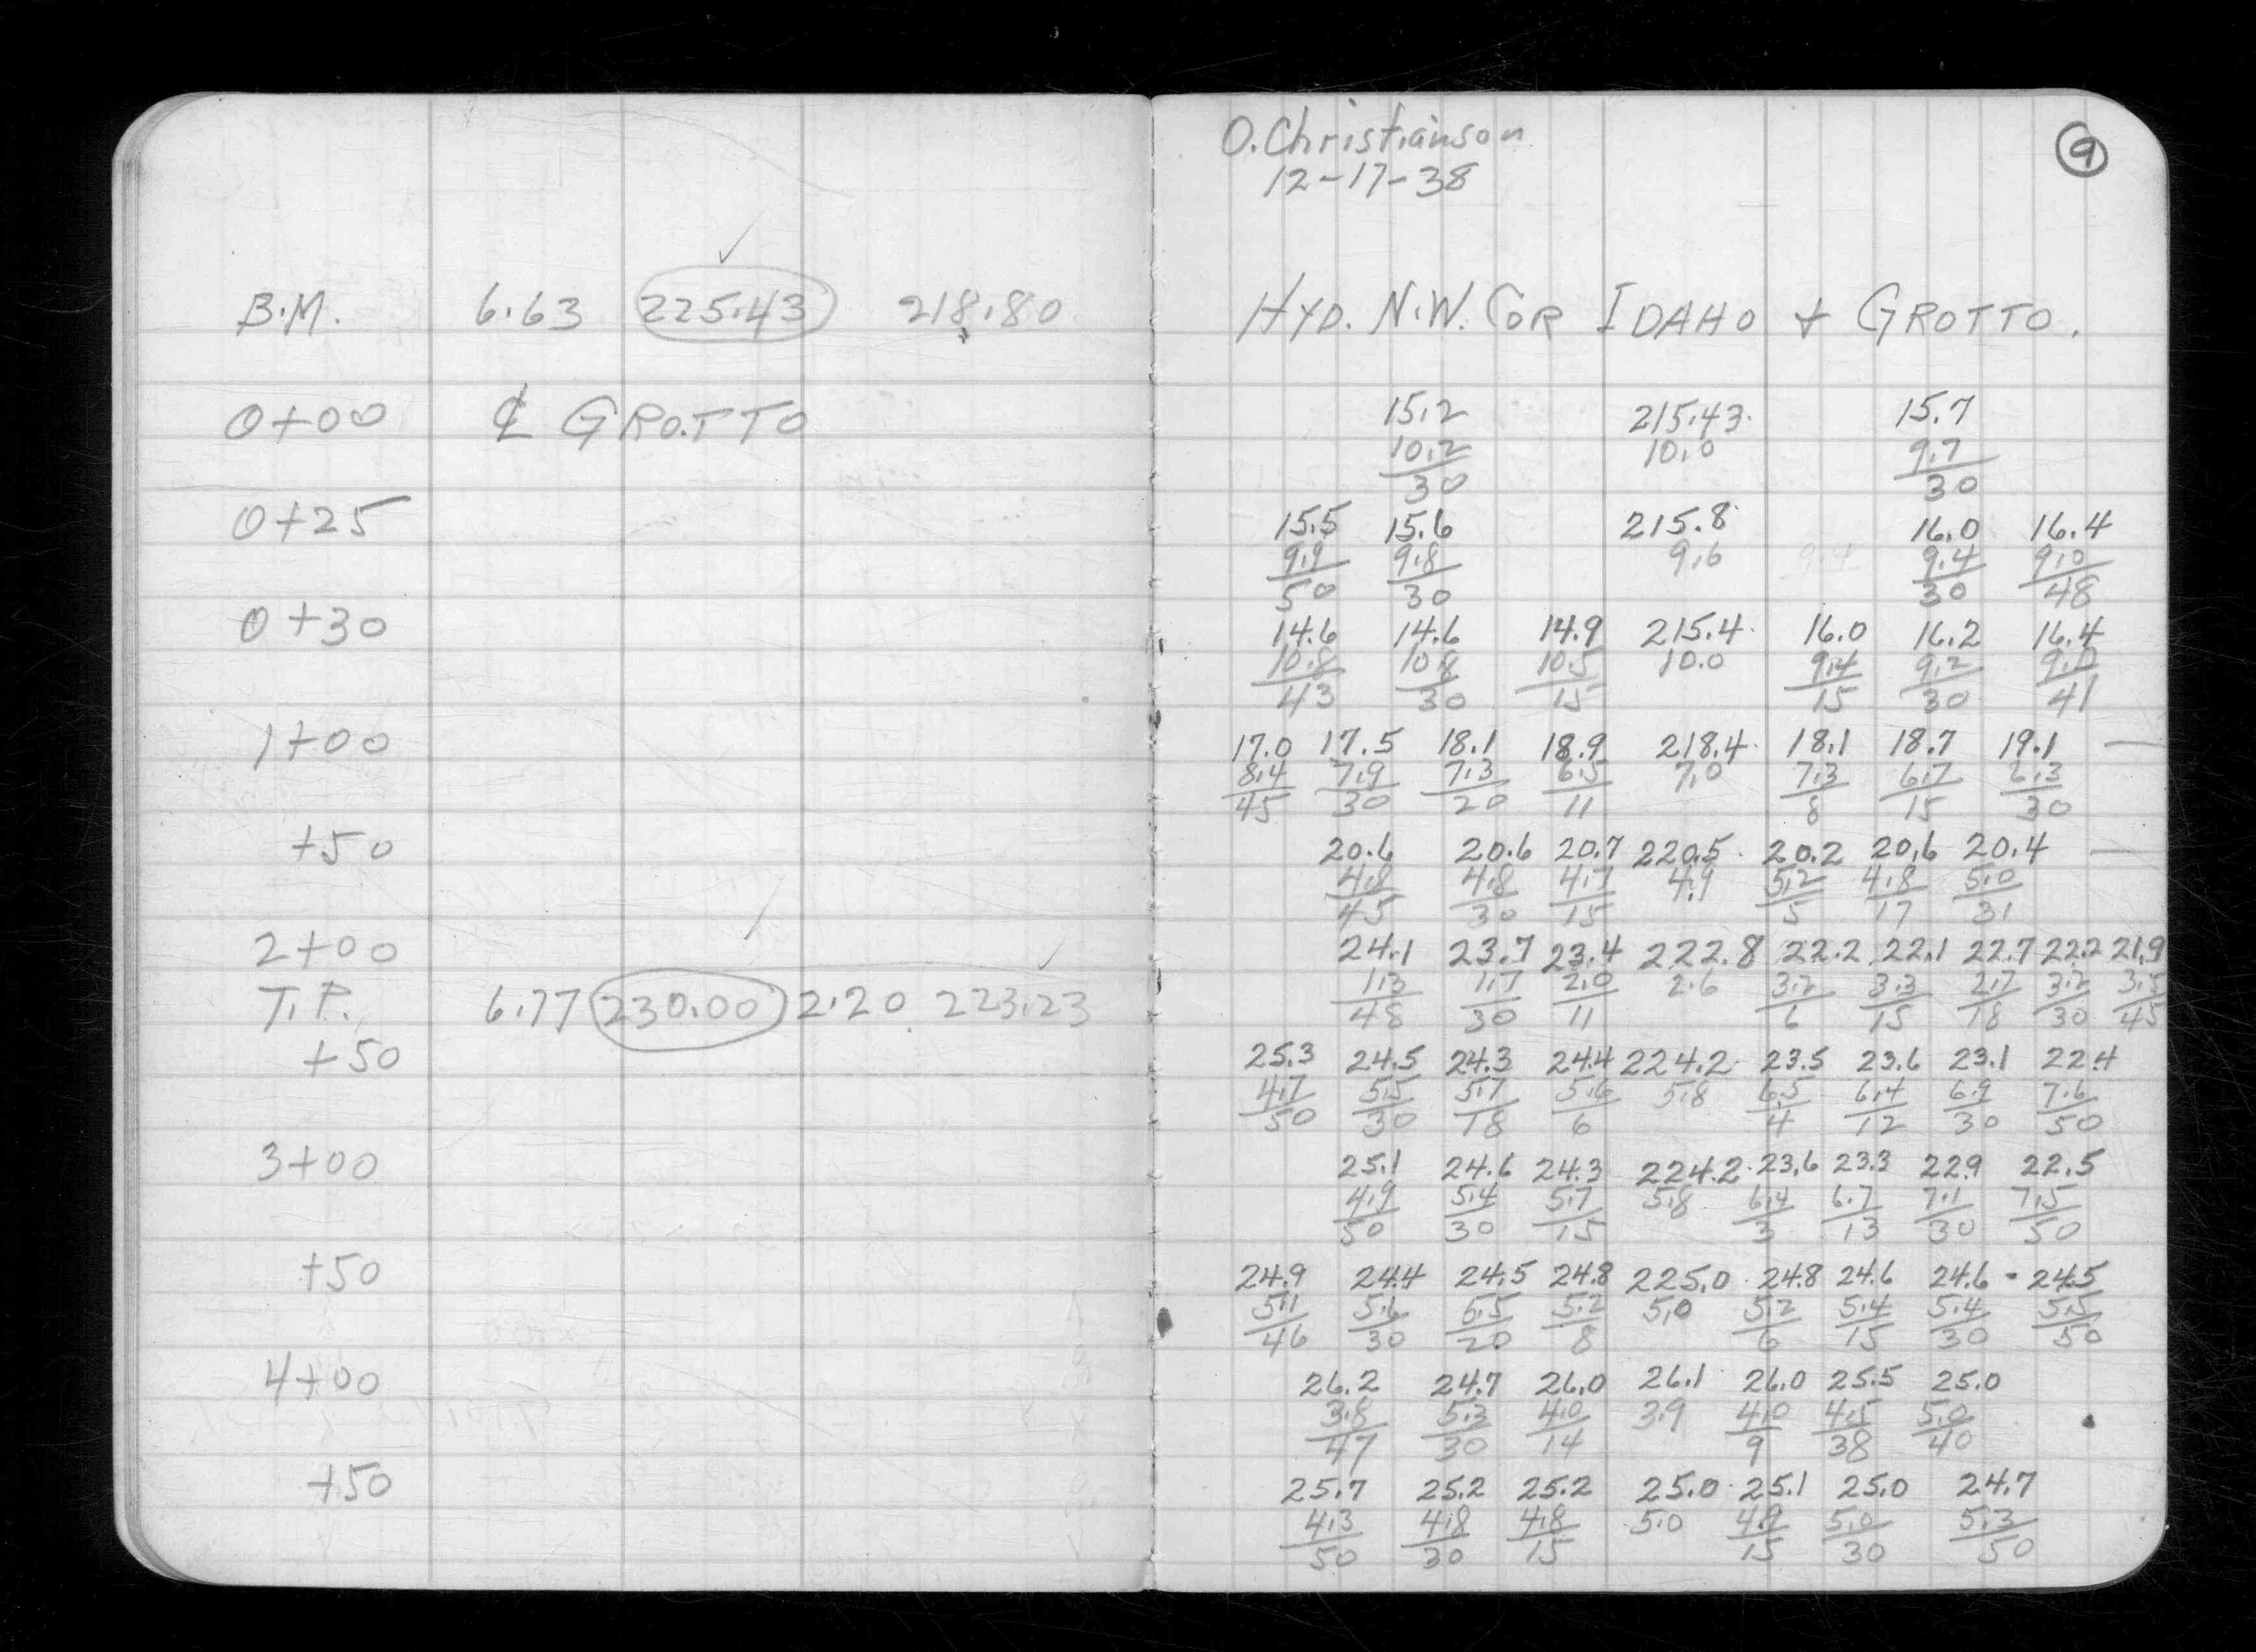 O. Christianson
12-17-38
9
B.M. 6.63 225.43 218.80 HYD. N.W. COR IDAHO + GROTTO.
0+00 ℄ GROTTO 15.2 215.43 15.7
10.2 10.0 9.7
30 30
0+25 15.5 15.6 215.8 16.0 16.4
9.9 9.8 9.6 9.4 9.4 9.0
50 30 30 48
0+30 14.6 14.6 14.9 215.4 16.0 16.2 16.4
10.8 10.8 10.5 10.0 9.4 9.2 9.0
43 30 15 15 30 41
1+00 17.0 17.5 18.1 18.9 218.4 18.1 18.7 19.1 —
8.4 7.9 7.3 6.5 7.0 7.3 6.7 6.3
45 30 20 11 8 15 30
+50 20.6 20.6 20.7 220.5 20.2 20.6 20.4 —
4.8 4.8 4.7 4.9 5.2 4.8 5.0
45 30 15 5 17 31
2+00 24.1 23.7 23.4 222.8 22.2 22.1 22.7 22.2 21.9
T.P. 6.77 230.00 2.20 223.23 1.3 1.7 2.0 2.6 3.2 3.3 2.7 3.2 3.5
48 30 11 6 15 18 30 45
+50 25.3 24.5 24.3 24.4 224.2 23.5 23.6 23.1 22.4
4.7 5.5 5.7 5.6 5.8 6.5 6.4 6.9 7.6
50 30 18 6 4 12 30 50
3+00 25.1 24.6 24.3 224.2 23.6 23.3 22.9 22.5
4.9 5.4 5.7 5.8 6.4 6.7 7.1 7.5
50 30 15 3 13 30 50
+50 24.9 24.4 24.5 24.8 225.0 24.8 24.6 24.6 - 24.5
5.1 5.6 5.5 5.2 5.0 5.2 5.4 5.4 5.5
46 30 20 8 6 15 30 50
4+00 26.2 24.7 26.0 26.1 26.0 25.5 25.0
3.8 5.3 4.0 3.9 4.0 4.5 5.0
47 30 14 9 38 40
+50 25.7 25.2 25.2 25.0 25.1 25.0 24.7
4.3 4.8 4.8 5.0 4.9 5.0 5.3
50 30 15 15 30 50